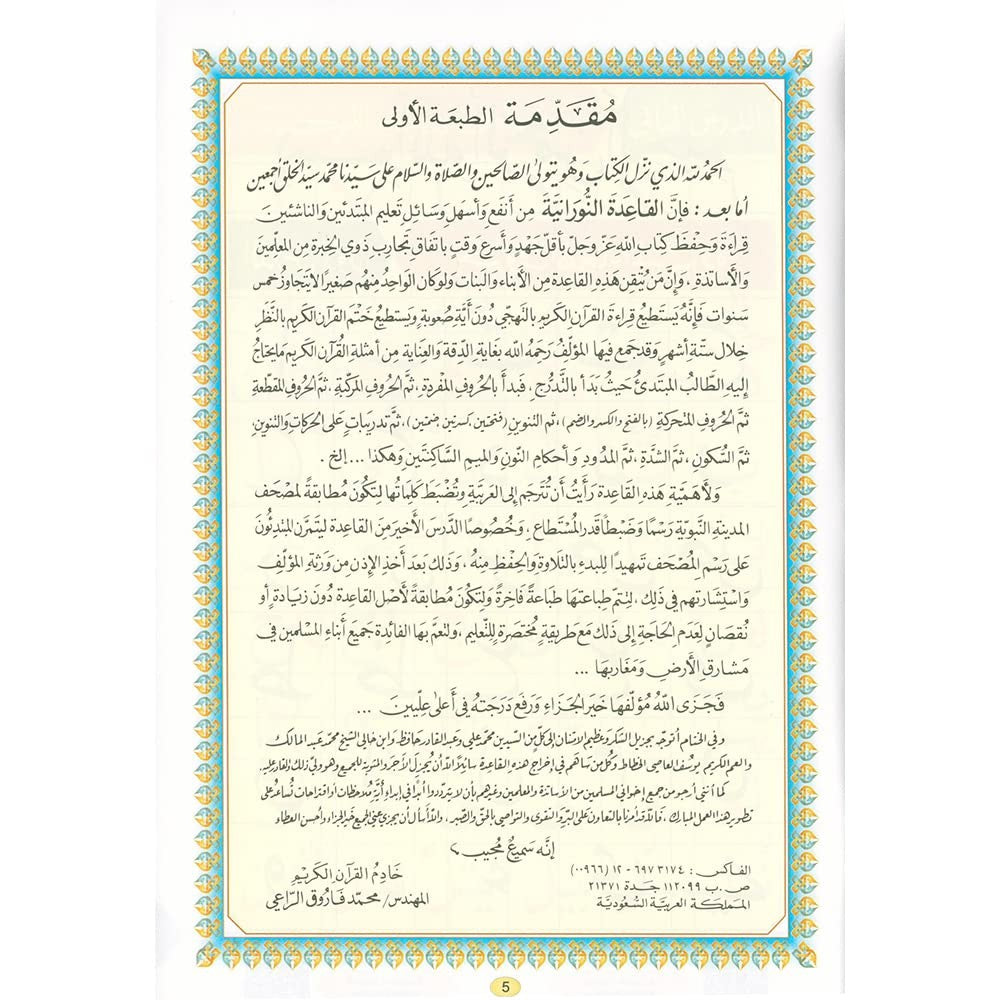 مُقَدِّمَة الطبعَة الأولى
الحمدُ للهِ الذي نزّل الكِتابَ وَهُوَ يتولىٰ الصّالحين والصّلاة والسّلام على سَيّدنا محمّد سيّد الخلق أجمعين
أما بعد : فإنَّ القَاعِدَةَ النُّورَانِيَّةَ مِن أنفَع وَأسهل وسَائل تَعليم المبتدئين والناشئين
قِراءَةَ وَحِفظَ كتابِ اللهِ عَزّ وَجلّ بأقلّ جَهدٍ وَأسرع وَقتٍ باتفاقِ تجاربِ ذَوي الخِبرةِ مِن المعلّمين
والأسَاتذةِ ، وَإنَّ مَن يُتقِن هَذهِ القاعدة مِن الأبناء والبنات ولو كان الواحِدُ مِنهُم صَغيرًا لا يَتجاوز خمس
سَنوات فَإنَّه يَستطيعُ قِراءَة القرآن الكَريم بالتهجّي دُون أيَّة صُعوبةٍ وَيستطيعُ خَتم القرآن الكريم بالنَّظَر
خِلال ستّة أشهرٍ وقد جمع فيها المؤلّف رَحمهُ الله بغايةِ الدّقة والعناية مِن أمثلةِ القُرآن الكريم مَا يحتاجُ
إليهِ الطَّالبُ المبتدئُ حيثُ بدَأ بالتَّدرُّج ، فبدأ بالحُروفِ المفردة ، ثمَّ الحروف المركبّة ، ثمَّ الحروف المقطّعة
ثمَّ الحُروفِ المتحركةِ (بالفتح والكسر والضم) ، ثم التنوين (فتحتين، كسرتين، ضمتين) ، ثمَّ تدريباتٍ على الحركاتِ والتنوين،
ثمَّ السُّكونِ ، ثمَّ الشَّدةِ ، ثمَّ المدُودِ وَأحكامِ النّونِ والميمِ السَّاكنَتَين وَهكذا ... إلخ .
وَلأهمّيةِ هَذهِ القَاعدة رَأيتُ أن تُترجَم إلى العَربيَّة وتُضبَط كَلِماتُها لتكُونَ مُطابقةً لمصْحَف
المدينةِ النَّبويّةِ رَسْمًا وَضَبطًا قَدرَ المُستطاع ، وَخُصوصًا الدَّرسَ الأخيرَ مِنَ القَاعدة ليتمَرنَ المبتدِئُونَ
عَلى رَسْمِ المُصْحَف تمهيدًا للبَدءِ بالتِّلاوةِ والحِفظِ مِنهُ ، وَذلك بَعدَ أخذِ الإذنِ مِن وَرثةِ المؤلّفِ
وَاستشارتهم في ذَلك ، لتتم طباعتها طباعةً فاخرةً ولتكُونَ مُطابقةً لأصْل القَاعدة دُون زيادة أو
نُقصَانٍ لعدَمِ الحَاجةِ إلى ذلك مَع طريقةٍ مُختصَرة للتَّعليم ، ولتعمَّ بها الفائدة جَميع أبناء المسلمين في
مَشارقِ الأرضِ وَمَغارِبهَا ...
فَجَزَى اللهُ مُؤلّفهَا خَيرَ الجَزاءِ وَرفَع دَرَجتهُ في أعلىٰ عِلّيين ...
وفي الختام أتوجه بجزيل الشكر وعظيم الامتنان إلى كلٍّ من السيدين محمد علي وعبد القادر حافظ وابن خالي الشيخ محمد عبد المالك
والعم الكريم يوسف العاصي الخطاط وكل من سَاهم في إخراج هذه القاعدة سَائلًا الله أن يُجزل الأجر والمثوبة للجميع وهو وليّ ذلك والقادر عليه.
كما أنني أرجو من جميع إخواني المسلمين من الأساتذة والمعلمين وغيرهم بأن لا يترددوا أبدًا في إبداء أيَّة مُلاحظات أو اقتراحات تُساعد على
تطوير هذا العمل المبارك ، فالله قد أمرنا بالتعاون على البِرّ والتقوى والتواصي بالحقّ والصّبر ، والله أسأل أن يجزي عنّي الجميع خير الجزاء وأحسن العطاء
إنَّه سَميعٌ مُجيب
الفاكس : ٦٩٧٣١٧٤ - ١٢ (٠٠٩٦٦)
ص.ب ١١٢٠٩٩ جَـدة ٢١٣٧١
المَملكة العربيّة السُّعوديّة
خَادِمُ القرآن الكَريم
المهندس/ محمّد فَاروق الرّاعي
5